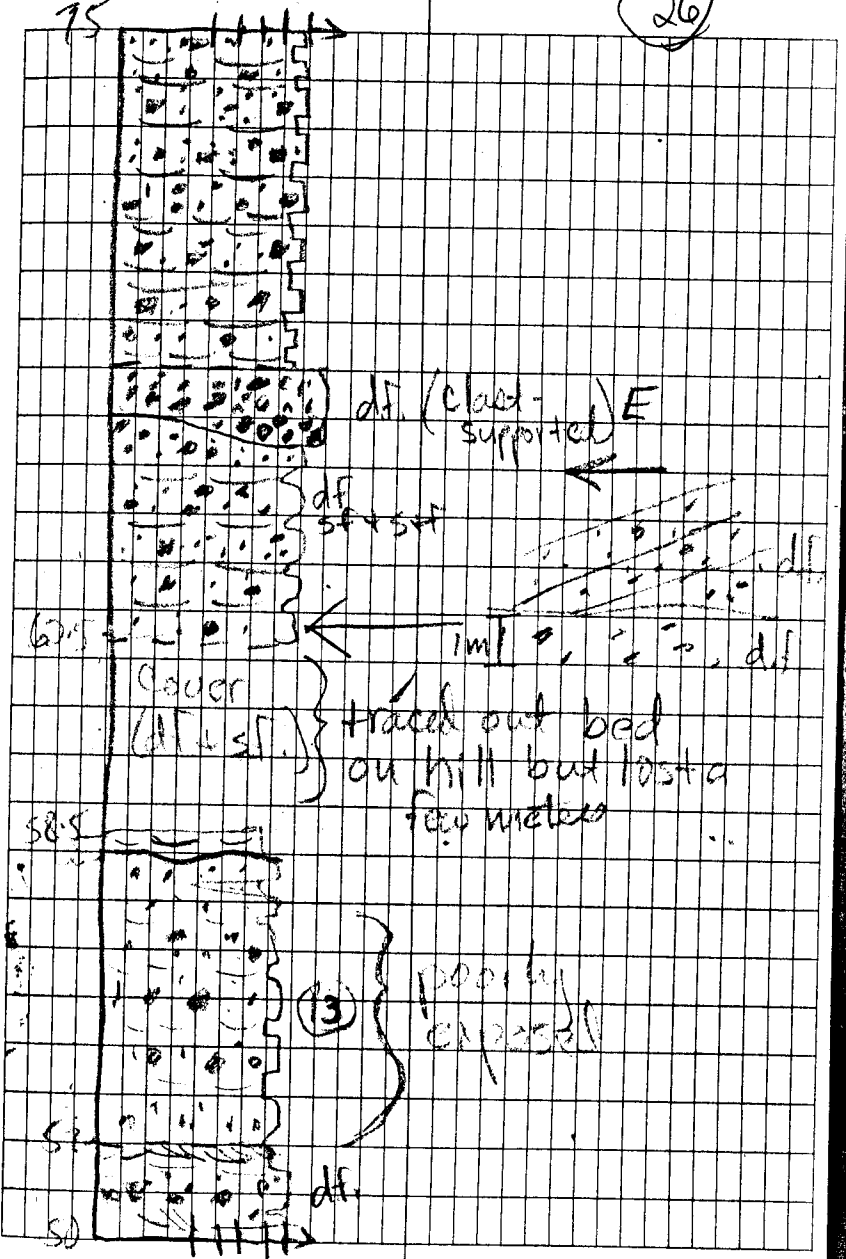 75
26
df. (clast-
supported) E
df
sf + sff
df.
62.5
1m
df
cover
(df + sf.)
traced out bed
on hill but lost a
few meters
58.5
13
poorly
exposed
52
df.
50